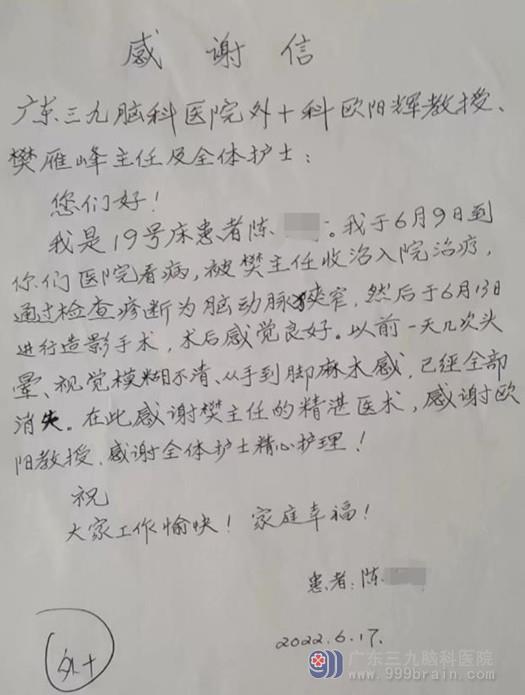 感谢信
广东三九脑科医院外十科欧阳辉教授、
樊雁峰主任及全体护士：
您们好！
我是19号床患者陈 。我于6月9日到
你们医院看病，被樊主任收治入院治疗，
通过检查诊断为脑动脉狭窄，然后于6月13日
进行造影手术，术后感觉良好。以前一天几次头
晕、视觉模糊不清、从手到脚麻木感，已经全部
消失。在此感谢樊主任的精湛医术，感谢欧
阳教授、感谢全体护士精心护理！
祝
大家工作愉快！家庭幸福！
患者：陈
2022.6.17.
外十
广东三九脑科医院
www.999brain.com